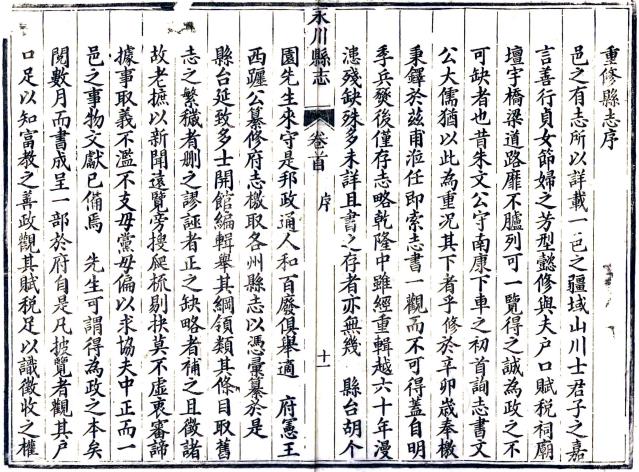 重修縣志序
邑之有志所以詳載一邑之疆域山川士君子之嘉
言善行貞女節婦之芳型懿修與夫戶口賦稅祠廟
壇宇橋梁道路靡不臚列可一覽得之誠為政之不
可缺者也昔朱文公守南康下車之初首詢志書文
公大儒猶以此為重況其下者乎修於辛卯歲奉檄
秉鐸於茲甫涖任即索志書一觀而不可得蓋自明
季兵燹後僅存志略乾隆中雖經重輯越六十年漫
漶殘缺殊多未詳且書之存者亦無幾 縣台胡个
永川縣志 卷首 序 十一
園先生來守是邦政通人和百廢俱舉適 府憲王
西躔公纂修府志檄取各州縣志以憑彙纂於是
縣台延致多士開館編輯舉其綱領類其條目取舊
志之繁穢者刪之謬誣者正之缺略者補之且徵諸
故老摭以新聞遠覽旁搜爬梳剔抉莫不虛衷審諦
據事取義不濫不支毋黨毋偏以求協夫中正而一
邑之事物文獻已備焉 先生可謂得為政之本矣
閱數月而書成呈一部於府自是凡披覽者觀其戶
口足以知富教之善政觀其賦稅足以識徵收之權